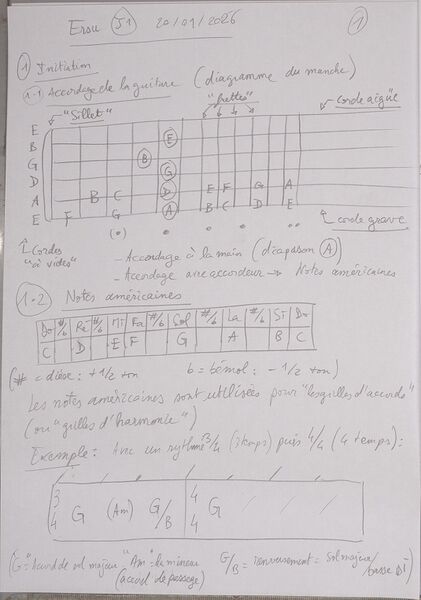 Ersu J1 20/01/2026 1
1 Initiation
1-1 Accordage de la guitare (diagramme du manche)
"Sillet" "frettes" Corde aigüe
E E
B B
G G
D B C D E F G A
A F G A B C D E
E
(•) • • • ••
corde grave
↑ Cordes "à vides"
- Accordage à la main (diapason A)
- Accordage avec accordeur → Notes américaines
1-2 Notes américaines
Do #/b Ré #/b Mi Fa #/b Sol #/b La #/b Si Do
C D E F G A B C
(# = dièse : +1/2 ton b = bémol : -1/2 ton)
Les notes américaines sont utilisées pour "les grilles d'accords"
(ou "grilles d'harmonie")
Exemple : Avec un rythme 3/4 (3 temps) puis 4/4 (4 temps) :
3/4 G (Am) G/B 4/4 G / / /
(G = Accord de sol majeur "Am" = la mineur G/B = renversement = Sol majeur
(accord de passage) basse Si)